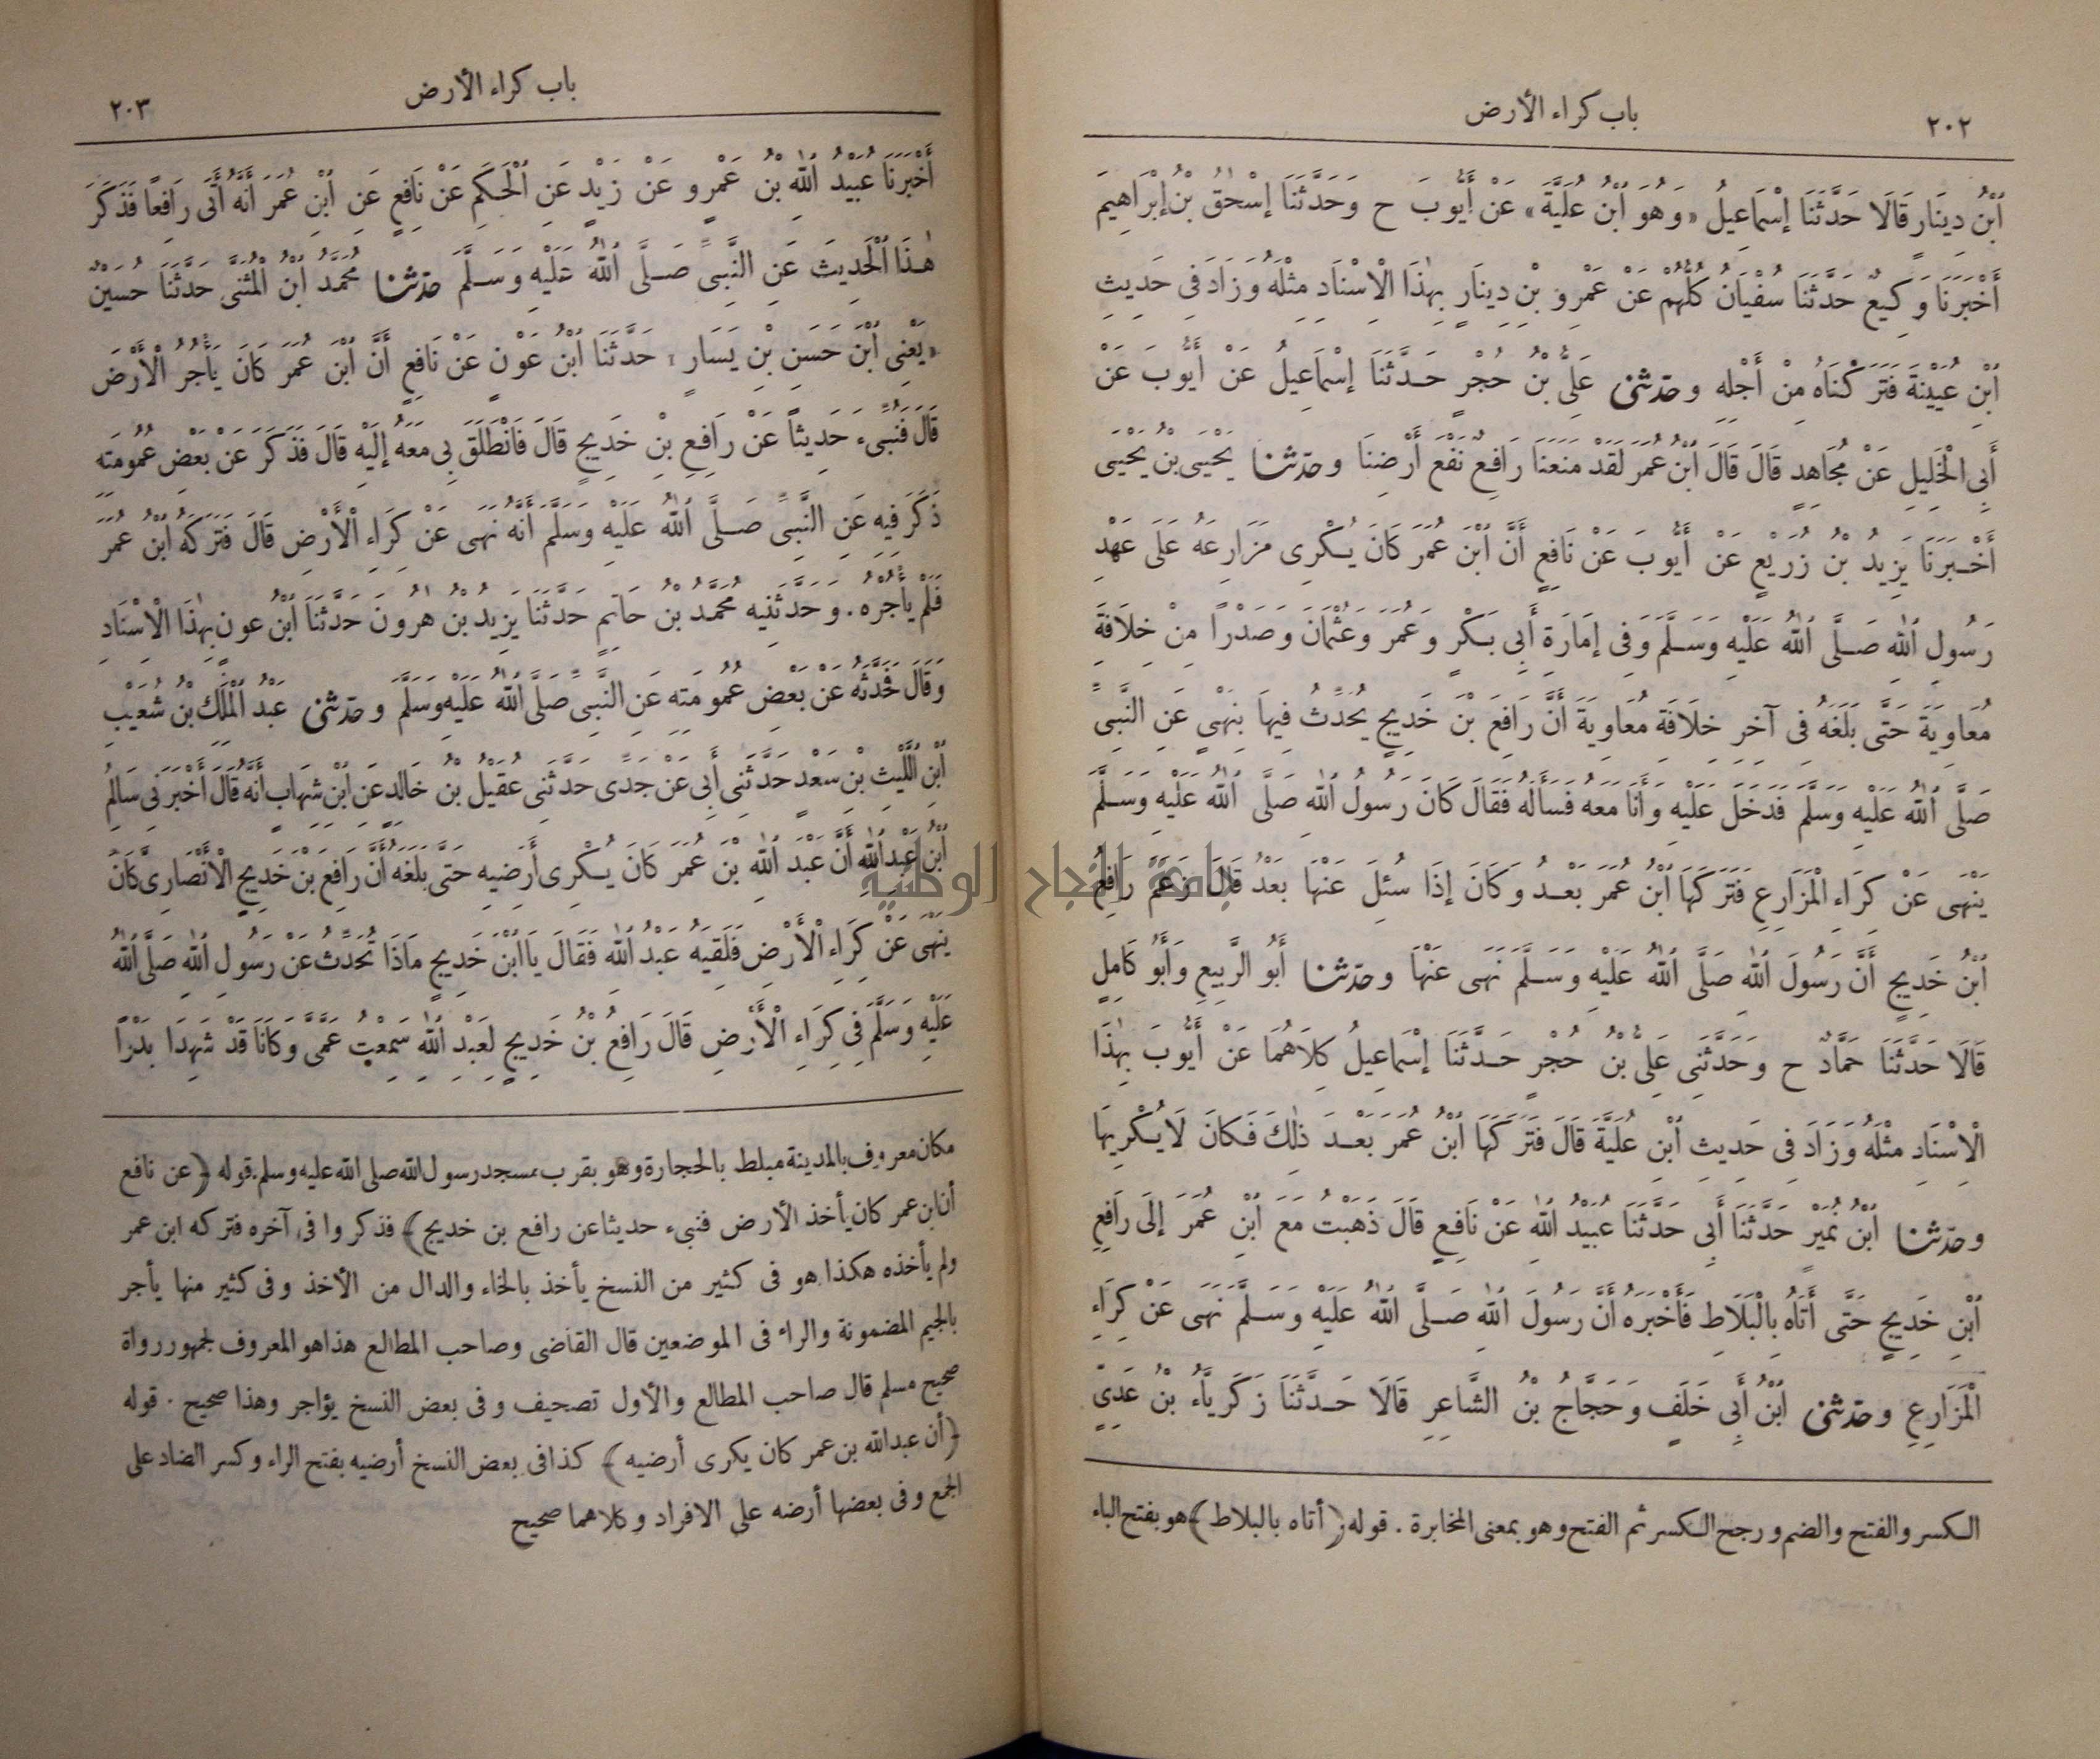 باب كراء الأرض
٢٠٢
ٱبْنُ دِينَارٍ قَالَا حَدَّثَنَا إِسْمَاعِيلُ «وَهُوَ ٱبْنُ عُلَيَّةَ» عَنْ أَيُّوبَ ح وَحَدَّثَنَا إِسْحٰقُ بْنُ إِبْرَاهِيمَ
أَخْبَرَنَا وَكِيعٌ حَدَّثَنَا سُفْيَانُ كُلُّهُمْ عَنْ عَمْرِو بْنِ دِينَارٍ بِهٰذَا الْاِسْنَادِ مِثْلَهُ وَزَادَ فِى حَدِيثِ
ٱبْنِ عُيَيْنَةَ فَتَرَكْنَاهُ مِنْ أَجْلِهِ وحَدَّثَنِى عَلِىُّ بْنُ حُجْرٍ حَدَّثَنَا إِسْمَاعِيلُ عَنْ أَيُّوبَ عَنْ
أَبِى الْخَلِيلِ عَنْ مُجَاهِدٍ قَالَ قَالَ ٱبْنُ عُمَرَ لَقَدْ مَنَعَنَا رَافِعٌ نَفْعَ أَرْضِنَا وحَدَّثَنَا يَحْيَى بْنُ يَحْيَى
أَخْبَرَنَا يَزِيدُ بْنُ زُرَيْعٍ عَنْ أَيُّوبَ عَنْ نَافِعٍ أَنَّ ٱبْنَ عُمَرَ كَانَ يُكْرِى مَزَارِعَهُ عَلَى عَهْدِ
رَسُولِ ٱللهِ صَلَّى ٱللهُ عَلَيْهِ وَسَلَّمَ وَفِى إِمَارَةِ أَبِى بَكْرٍ وَعُمَرَ وَعُثْمَانَ وَصَدْرًا مِنْ خِلَافَةِ
مُعَاوِيَةَ حَتَّى بَلَغَهُ فِى آخِرِ خِلَافَةِ مُعَاوِيَةَ أَنَّ رَافِعَ بْنَ خَدِيجٍ يُحَدِّثُ فِيهَا بِنَهْىٍ عَنِ النَّبِىِّ
صَلَّى ٱللهُ عَلَيْهِ وَسَلَّمَ فَدَخَلَ عَلَيْهِ وَأَنَا مَعَهُ فَسَأَلَهُ فَقَالَ كَانَ رَسُولُ ٱللهِ صَلَّى ٱللهُ عَلَيْهِ وَسَلَّمَ
يَنْهَى عَنْ كِرَاءِ الْمَزَارِعِ فَتَرَكَهَا ٱبْنُ عُمَرَ بَعْدُ وَكَانَ إِذَا سُئِلَ عَنْهَا بَعْدُ قَالَ زَعَمَ رَافِعُ
ٱبْنُ خَدِيجٍ أَنَّ رَسُولَ ٱللهِ صَلَّى ٱللهُ عَلَيْهِ وَسَلَّمَ نَهَى عَنْهَا وحَدَّثَنَا أَبُو الرَّبِيعِ وَأَبُو كَامِلٍ
قَالَا حَدَّثَنَا حَمَّادٌ ح وَحَدَّثَنِى عَلِىُّ بْنُ حُجْرٍ حَدَّثَنَا إِسْمَاعِيلُ كِلَاهُمَا عَنْ أَيُّوبَ بِهٰذَا
الْاِسْنَادِ مِثْلَهُ وَزَادَ فِى حَدِيثِ ٱبْنِ عُلَيَّةَ قَالَ فَتَرَكَهَا ٱبْنُ عُمَرَ بَعْدَ ذٰلِكَ فَكَانَ لَا يُكْرِيهَا
وحَدَّثَنَا ٱبْنُ نُمَيْرٍ حَدَّثَنَا أَبِى حَدَّثَنَا عُبَيْدُ ٱللهِ عَنْ نَافِعٍ قَالَ ذَهَبْتُ مَعَ ٱبْنِ عُمَرَ إِلَى رَافِعِ
ٱبْنِ خَدِيجٍ حَتَّى أَتَاهُ بِالْبَلَاطِ فَأَخْبَرَهُ أَنَّ رَسُولَ ٱللهِ صَلَّى ٱللهُ عَلَيْهِ وَسَلَّمَ نَهَى عَنْ كِرَاءِ
الْمَزَارِعِ وحَدَّثَنِى ٱبْنُ أَبِى خَلَفٍ وَحَجَّاجُ بْنُ الشَّاعِرِ قَالَا حَدَّثَنَا زَكَرِيَّاءُ بْنُ عَدِىٍّ
الكسر والفتح والضم ورجح الكسر ثم الفتح وهو بمعنى المخابرة . قوله ﴿أتاه بالبلاط﴾ هو بفتح الباء
باب كراء الأرض
٢٠٣
أَخْبَرَنَا عُبَيْدُ ٱللهِ بْنُ عَمْرٍو عَنْ زَيْدٍ عَنِ ٱلْحَكَمِ عَنْ نَافِعٍ عَنِ ٱبْنِ عُمَرَ أَنَّهُ أَتَى رَافِعًا فَذَكَرَ
هٰذَا ٱلْحَدِيثَ عَنِ النَّبِىِّ صَلَّى ٱللهُ عَلَيْهِ وَسَلَّمَ حَدَّثَنَا مُحَمَّدُ ٱبْنُ الْمُثَنَّى حَدَّثَنَا حُسَيْنٌ
«يَعْنِى ٱبْنَ حَسَنِ بْنِ يَسَارٍ» حَدَّثَنَا ٱبْنُ عَوْنٍ عَنْ نَافِعٍ أَنَّ ٱبْنَ عُمَرَ كَانَ يَأْجُرُ الْأَرْضَ
قَالَ فَنُبِّىءَ حَدِيثًا عَنْ رَافِعِ بْنِ خَدِيجٍ قَالَ فَانْطَلَقَ بِى مَعَهُ إِلَيْهِ قَالَ فَذَكَرَ عَنْ بَعْضِ عُمُومَتِهِ
ذَكَرَ فِيهِ عَنِ النَّبِىِّ صَلَّى ٱللهُ عَلَيْهِ وَسَلَّمَ أَنَّهُ نَهَى عَنْ كِرَاءِ الْأَرْضِ قَالَ فَتَرَكَهُ ٱبْنُ عُمَرَ
فَلَمْ يَأْجُرْهُ . وَحَدَّثَنِيهِ مُحَمَّدُ بْنُ حَاتِمٍ حَدَّثَنَا يَزِيدُ بْنُ هٰرُونَ حَدَّثَنَا ٱبْنُ عَوْنٍ بِهٰذَا الْاِسْنَادِ
وَقَالَ فَحَدَّثَهُ عَنْ بَعْضِ عُمُومَتِهِ عَنِ النَّبِىِّ صَلَّى ٱللهُ عَلَيْهِ وَسَلَّمَ وحَدَّثَنِى عَبْدُ الْمَلِكِ بْنُ شُعَيْبِ
ٱبْنِ ٱللَّيْثِ بْنِ سَعْدٍ حَدَّثَنِى أَبِى عَنْ جَدِّى حَدَّثَنِى عُقَيْلُ بْنُ خَالِدٍ عَنِ ٱبْنِ شِهَابٍ أَنَّهُ قَالَ أَخْبَرَنِى سَالِمُ
ٱبْنُ عَبْدِ ٱللهِ أَنَّ عَبْدَ ٱللهِ بْنَ عُمَرَ كَانَ يُكْرِى أَرَضِيهِ حَتَّى بَلَغَهُ أَنَّ رَافِعَ بْنَ خَدِيجٍ الْأَنْصَارِىَّ كَانَ
يَنْهَى عَنْ كِرَاءِ الْأَرْضِ فَلَقِيَهُ عَبْدُ ٱللهِ فَقَالَ يَا ٱبْنَ خَدِيجٍ مَاذَا تُحَدِّثُ عَنْ رَسُولِ ٱللهِ صَلَّى ٱللهُ
عَلَيْهِ وَسَلَّمَ فِى كِرَاءِ الْأَرْضِ قَالَ رَافِعُ بْنُ خَدِيجٍ لِعَبْدِ ٱللهِ سَمِعْتُ عَمَّىَّ وَكَانَا قَدْ شَهِدَا بَدْرًا
مكان معروف بالمدينة مبلط بالحجارة وهو بقرب مسجد رسول الله صلى الله عليه وسلم. قوله ﴿عن نافع
أن ابن عمر كان يأخذ الأرض فنبىء حديثا عن رافع بن خديج﴾ فذكروا فى آخره فتركه ابن عمر
ولم يأخذه هكذا هو فى كثير من النسخ يأخذ بالخاء والذال من الأخذ وفى كثير منها يأجر
بالجيم المضمونة والراء فى الموضعين قال القاضى وصاحب المطالع هذا هو المعروف لجمهور رواة
صحيح مسلم قال صاحب المطالع والأول تصحيف وفى بعض النسخ يؤاجر وهذا صحيح . قوله
﴿أن عبدالله بن عمر كان يكرى أرضيه﴾ كذا فى بعض النسخ أرضيه بفتح الراء وكسر الضاد على
الجمع وفى بعضها أرضه على الافراد وكلاهما صحيح
جامعة النجاح الوطنية